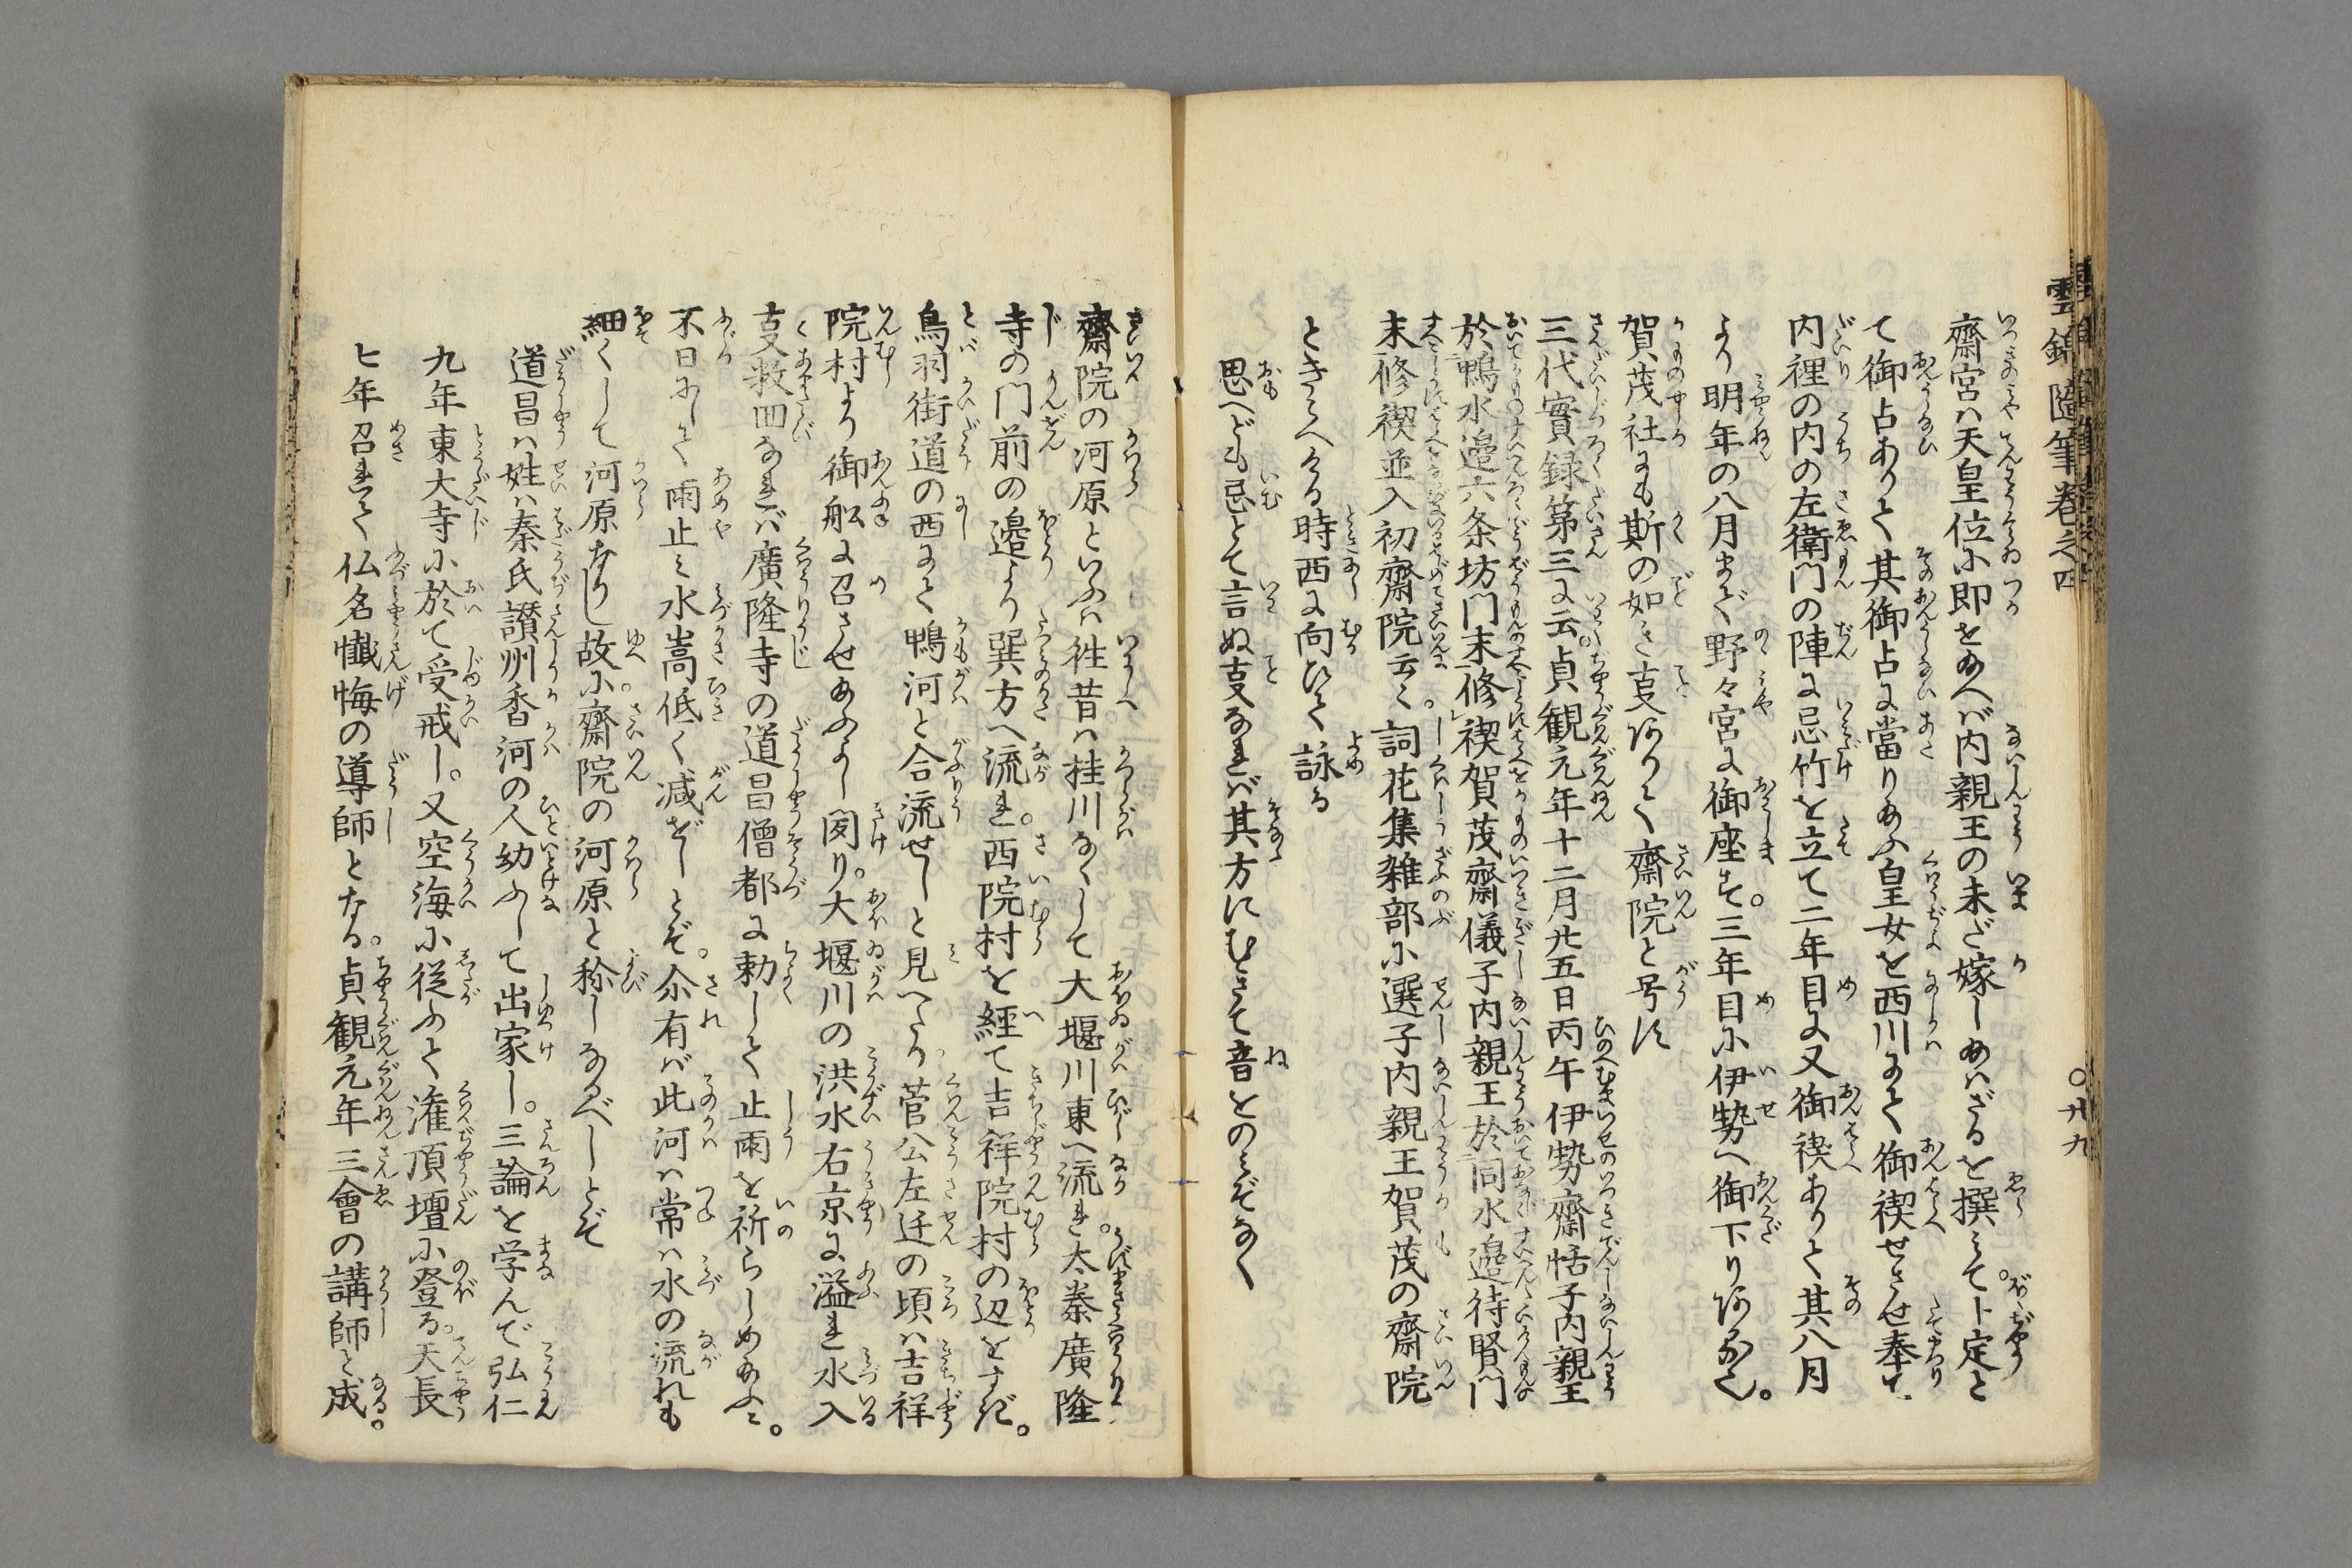 雲錦随筆巻之四
〇廿九
齋宮ハ天皇位に即を給へバ内親王の未ざ嫁し給ハざるを撰ミて卜定と
て御占ありて其御占に當り給ふ皇女を西川にて御禊せさせ奉て
内裡の内の左衛門の陣に忌竹を立て二年目に又御禊ありて其八月
より明年の八月まで野々宮に御座す。三年目に伊勢へ御下り
賀茂社にも斯の如き叓ありて齋院と号す
三代實録第三に云。貞観元年十二月廿五日丙午伊勢齋恬子内親王
於鴨水邉六条坊門末修禊賀茂齋儀子内親王於同水邉待賢門
末修禊並入初齋院云々。詞花集雑部に選子内親王賀茂の齋院
ときこへける時西に向ひて詠る
思へども忌とて言ぬ叓なれバ其方にむきて音をのミぞなく
齋院の河原といふハ徃昔ハ桂川なくして大堰川東へ流れ。太秦廣隆
寺の門前の邉より巽方へ流れ。西院村を経て吉祥院村の辺をすぎ。
鳥羽街道の西にて鴨河と合流せしと見へたり。菅公左迁の頃ハ吉祥
院村より御舩に召させ給ふよし聞り。大堰川の洪水右京に溢れ水入
叓数回なれバ廣隆寺の道昌僧都に勅して止雨を祈らしめ給ふに。
不日にして雨止ミ水嵩低く减ぜしとぞ。尒有バ此河ハ常ハ水の流れも
細くして河原なりし故に。齋院の河原と称しなるべしとぞ
道昌ハ姓ハ秦氏讃州香河の人幼ふして出家し。三論を学んで弘仁
九年東大寺に於て受戒し。又空海に従ふて潅頂壇に登る。天長
七年召れて仏名懺悔の導師となる。貞観元年三會の講師と成。